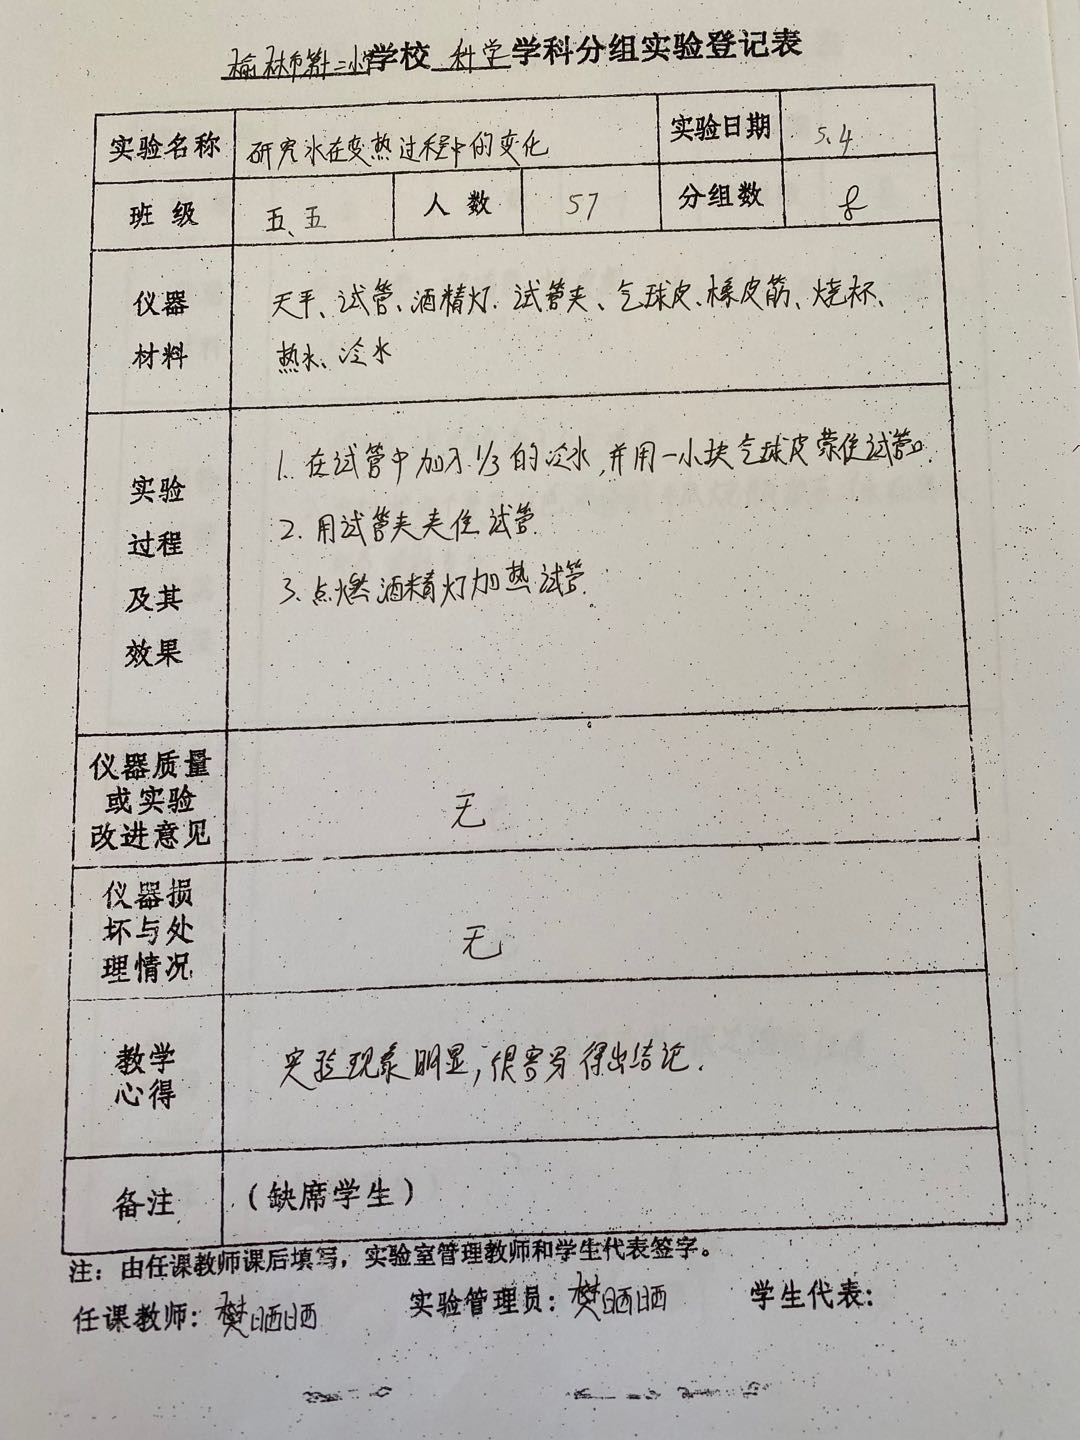 榆林市第十二小学学校 科学 学科分组实验登记表
实验名称 研究水在变热过程中的变化 实验日期 5.4
班级 五、五 人数 57 分组数 8
仪器材料 天平、试管、酒精灯. 试管夹、气球皮、橡皮筋、烧杯、
热水、冷水
实验
过程
及其
效果
1. 在试管中加入1/3的冷水,并用一小块气球皮蒙住试管口.
2. 用试管夹夹住试管.
3. 点燃酒精灯加热试管.
仪器质量
或实验
改进意见
无
仪器损
坏与处
理情况
无
教学
心得
实验现象明显,很容易得出结论.
备注 (缺席学生)
注：由任课教师课后填写，实验室管理教师和学生代表签字。
任课教师：樊晒晒 实验管理员：樊晒晒 学生代表：